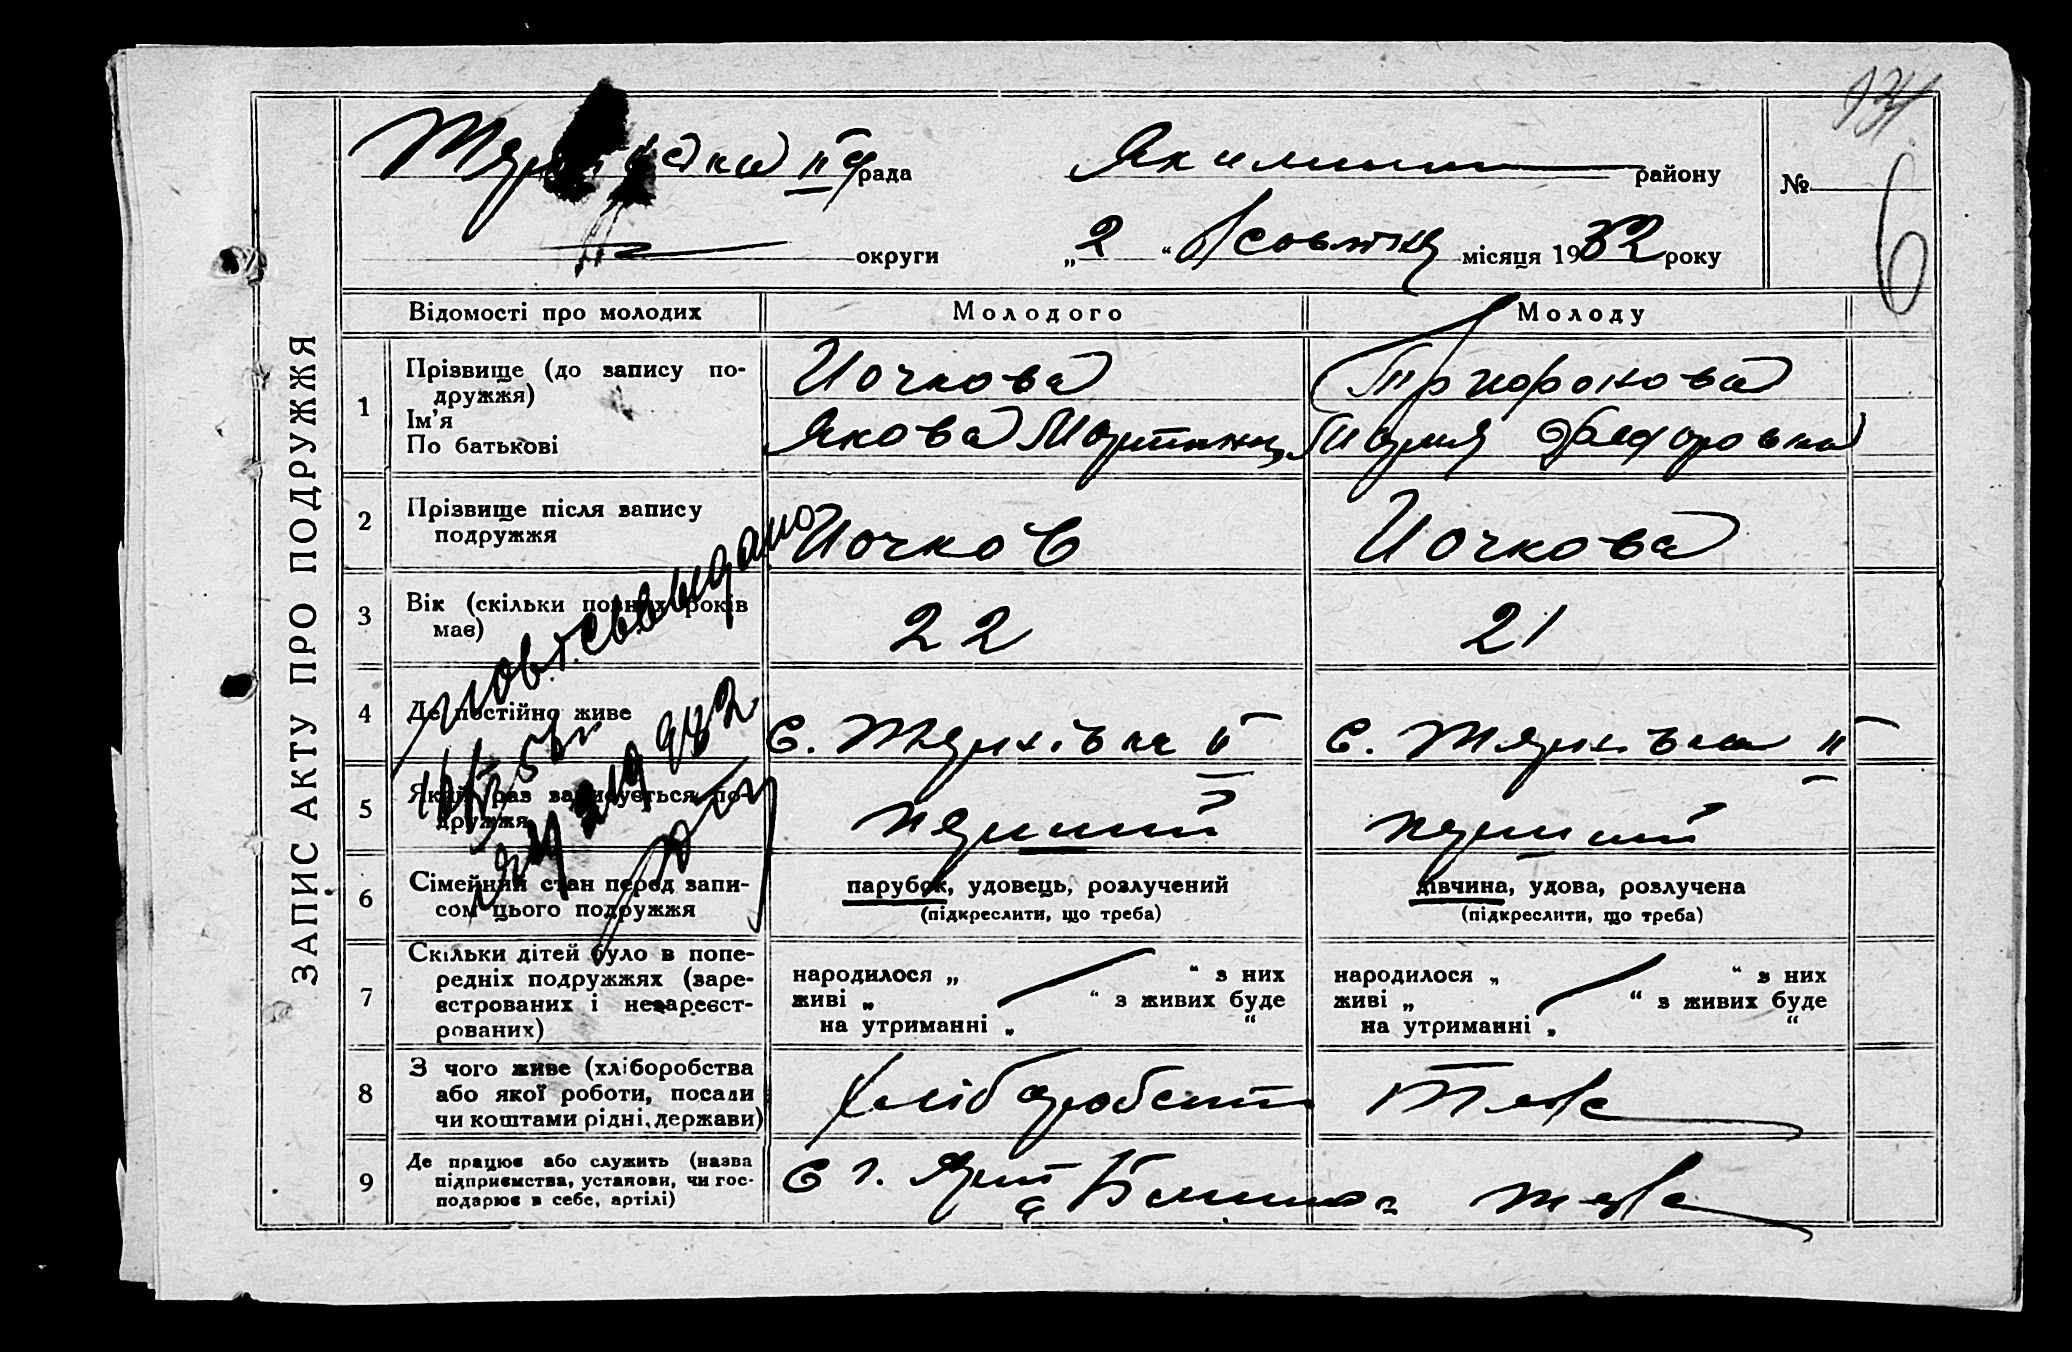 ЗАПИС АКТУ ПРО ПОДРУЖЖЯ
рада
району
№ 6
округи
„2“ Жовтня місяця 1932 року
Відомості про молодих
Молодого
Молоду
1
Прізвище (до запису по-
дружжя)
Ім’я
По батькові
Йочкова
Якова
Трифонова
Мария Федоровна
2
Прізвище після запису
подружжя
Йочков
Йочкова
3
Вік (скільки повних років
має)
22
21
4
Де постійно живе
с.
с.
5
Який раз записується по-
дружжя
перший
перший
6
Сімейний стан перед запи-
сом цього подружжя
парубок, удовець, розлучений
(підкреслити, що треба)
дівчина, удова, розлучена
(підкреслити, що треба)
7
Скільки дітей було в попе-
редніх подружжях (заре-
єстрованих і незареєст-
рованих)
народилося „ “ з них
живі „ “ з живих буде
на утриманні „ “
народилося „ “ з них
живі „ “ з живих буде
на утриманні „ “
8
З чого живе (хліборобства
або якої роботи, посади
чи коштами рідні, держави)
теж
9
Де працює або служить (назва
підприємства, установи, чи гос-
подарює в себе, артілі)
теж